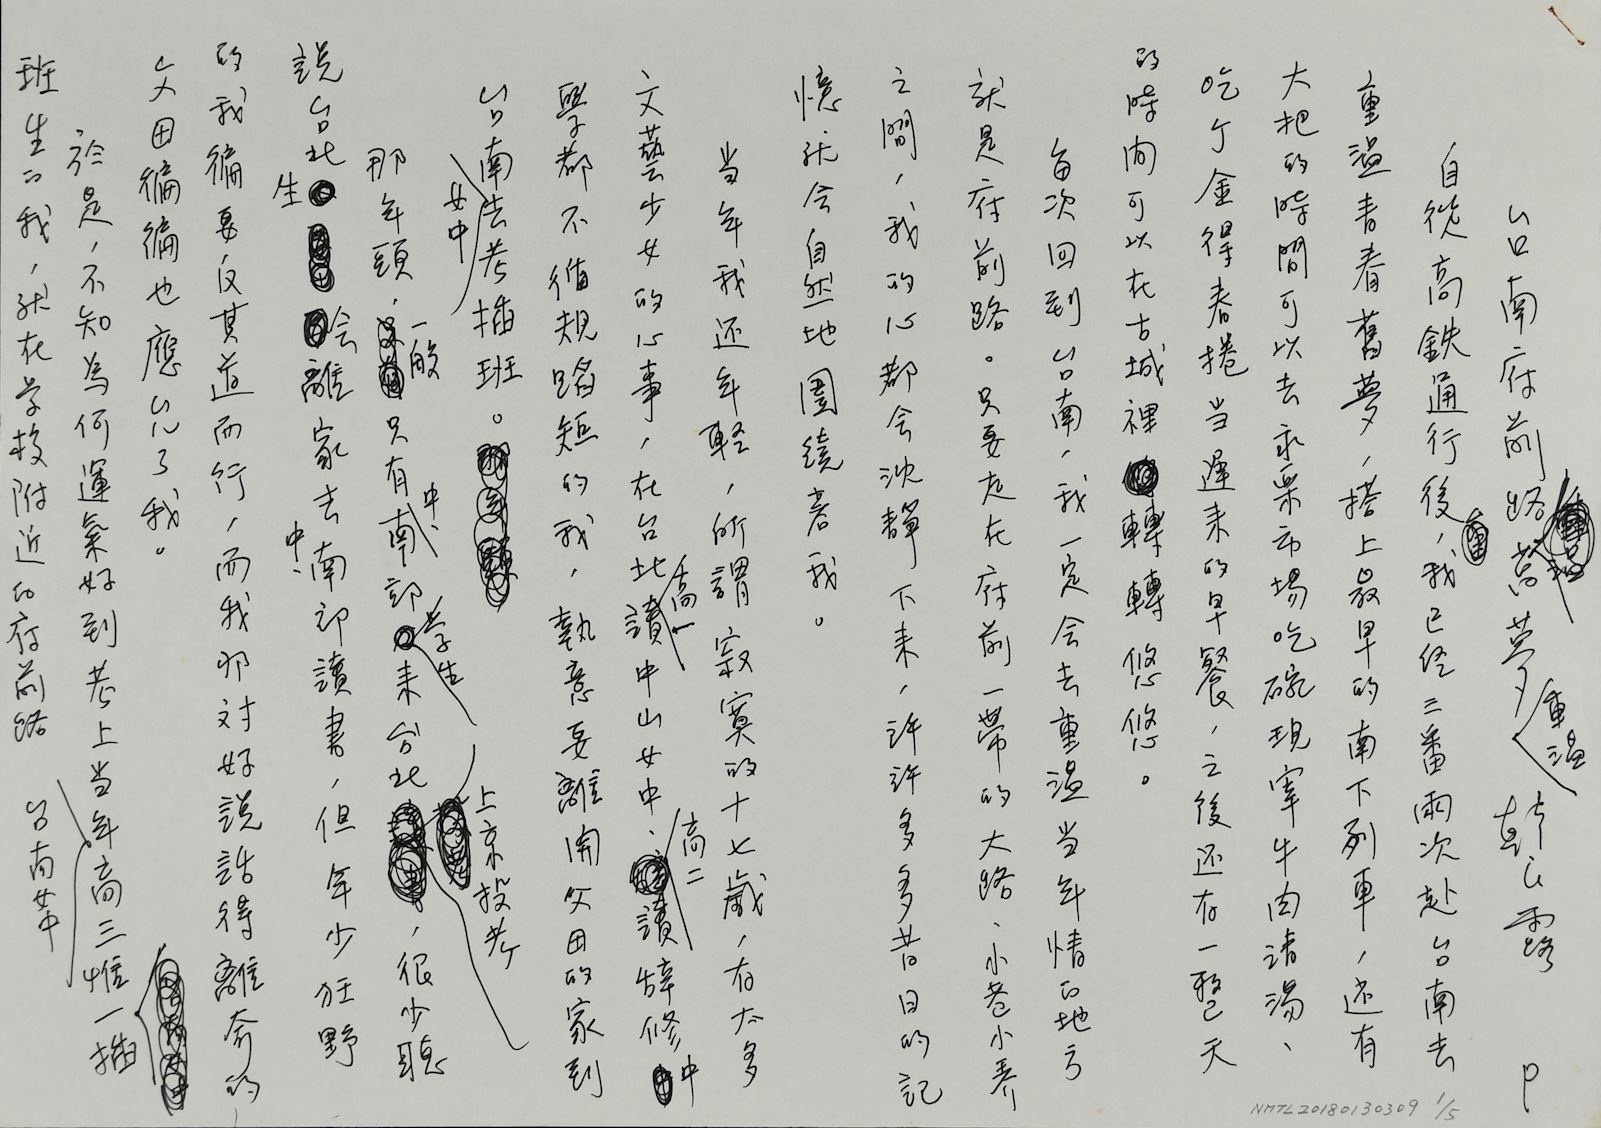 台南府前路舊夢重溫 韓良露 P
自從高鐵通行後，我已經三番兩次赴台南去
重溫青春舊夢，搭上最早的南下列車，還有
大把的時間可以去永樂市場吃碗現宰牛肉清湯、
吃个金得春捲当遲来的早餐，之後还有一整天
的時间可以在古城裡轉轉悠悠。
每次回到台南，我一定会去重溫当年情的地方
就是府前路。只要走在府前一帶的大路、小巷小弄
之間，我的心都会沈靜下来，許許多多昔日的記
憶就会自然地圍繞著我。
当年我还年輕，所謂寂寞的十七歲，有太多
文藝少女的心事，在台北高一讀中山女中、高二讀輔修中
學都不循規蹈矩的我，執意要離開父田的家到
台南女中去考插班。
那年頭，一般只有中、南部学生来台北上京投考，很少聽
說台北生会離家去中、南部讀書，但年少狂野
的我偏要反其道而行，而我那对好說話得離奇的
父田偏偏也應允了我。
於是，不知為何運氣好到考上当年高三台南女中惟一插
班生的我，就在学校附近的府前路
NMTL20180130309 1/5